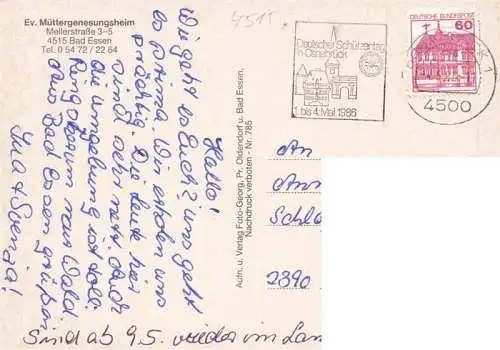 Ev. Müttergenesungsheim
Mellerstraße 3-5
4515 Bad Essen
Tel. 0 54 72 / 22 64
4515
Deutscher Schützentag
in Osnabrück
1. bis 4. Mai 1986
DEUTSCHE BUNDESPOST
60
4500
Hallo!
Wie geht es Euch? Uns geht
es prima. Wir erholen uns
prächtig. Die Leute hier
sind sehr nett. Auch
die Umgebung ist toll.
Ringsherum nur Wald.
Aus Bad Essen grüßen
Svenja!
Sind ab 9.5. wieder im Lan
Aufn. u. Verlag Foto-Georg, Pr. Oldendorf u. Bad Essen,
Nachdruck verboten - Nr. 785
An
Ann
Schl
2390